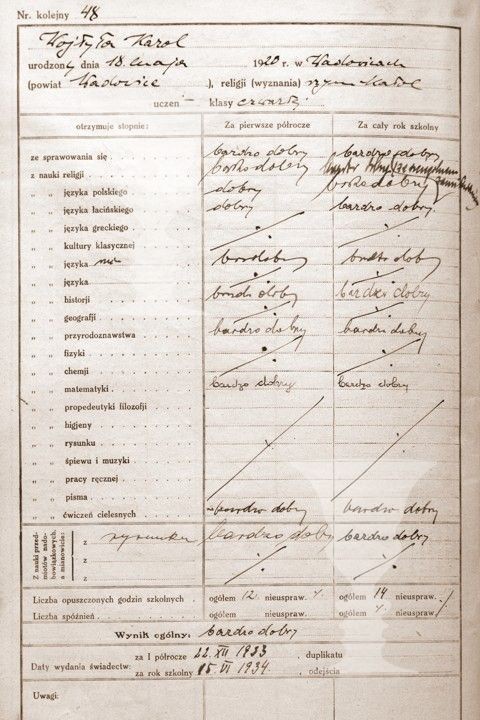 Nr. kolejny 48
Wojtyła Karol
urodzony dnia 18. maja 1920 r. w Wadowicach
(powiat Wadowice ), religii (wyznania) rzym. katol
uczeń — klasy czwartej
otrzymuje stopnie: Za pierwsze półrocze Za cały rok szkolny
ze sprawowania się bardzo dobry bardzo dobry
z nauki religii bardzo dobry
„ „ języka polskiego dobry bardzo dobry
„ „ języka łacińskiego dobry bardzo dobry.
„ „ języka greckiego
„ „ kultury klasycznej
„ „ języka bardzo dobry bardzo dobry
„ „ języka
„ „ historji bardzo dobry bardzo dobry
„ „ geografji
„ „ przyrodoznawstwa bardzo dobry bardzo dobry
„ „ fizyki
„ „ chemji
„ „ matematyki bardzo dobry bardzo dobry
„ „ propedeutyki filozofji
„ „ higjeny
„ „ rysunku
„ „ śpiewu i muzyki
„ „ pracy ręcznej
„ „ pisma
„ „ ćwiczeń cielesnych bardzo dobry bardzo dobry
Z nauki przedmiotów nadobowiązkowych, a mianowicie:
z rysunku bardzo dobry bardzo dobry
z
Liczba opuszczonych godzin szkolnych . ogółem 12. nieuspraw. ogółem 14 nieuspraw.
Liczba spóźnień . ogółem nieuspraw. ogółem nieuspraw.
Wynik ogólny: bardzo dobry
Daty wydania świadectw:
za I półrocze 22. XII 1933 , duplikatu
za rok szkolny 15. VI 1934. , odejścia
Uwagi: